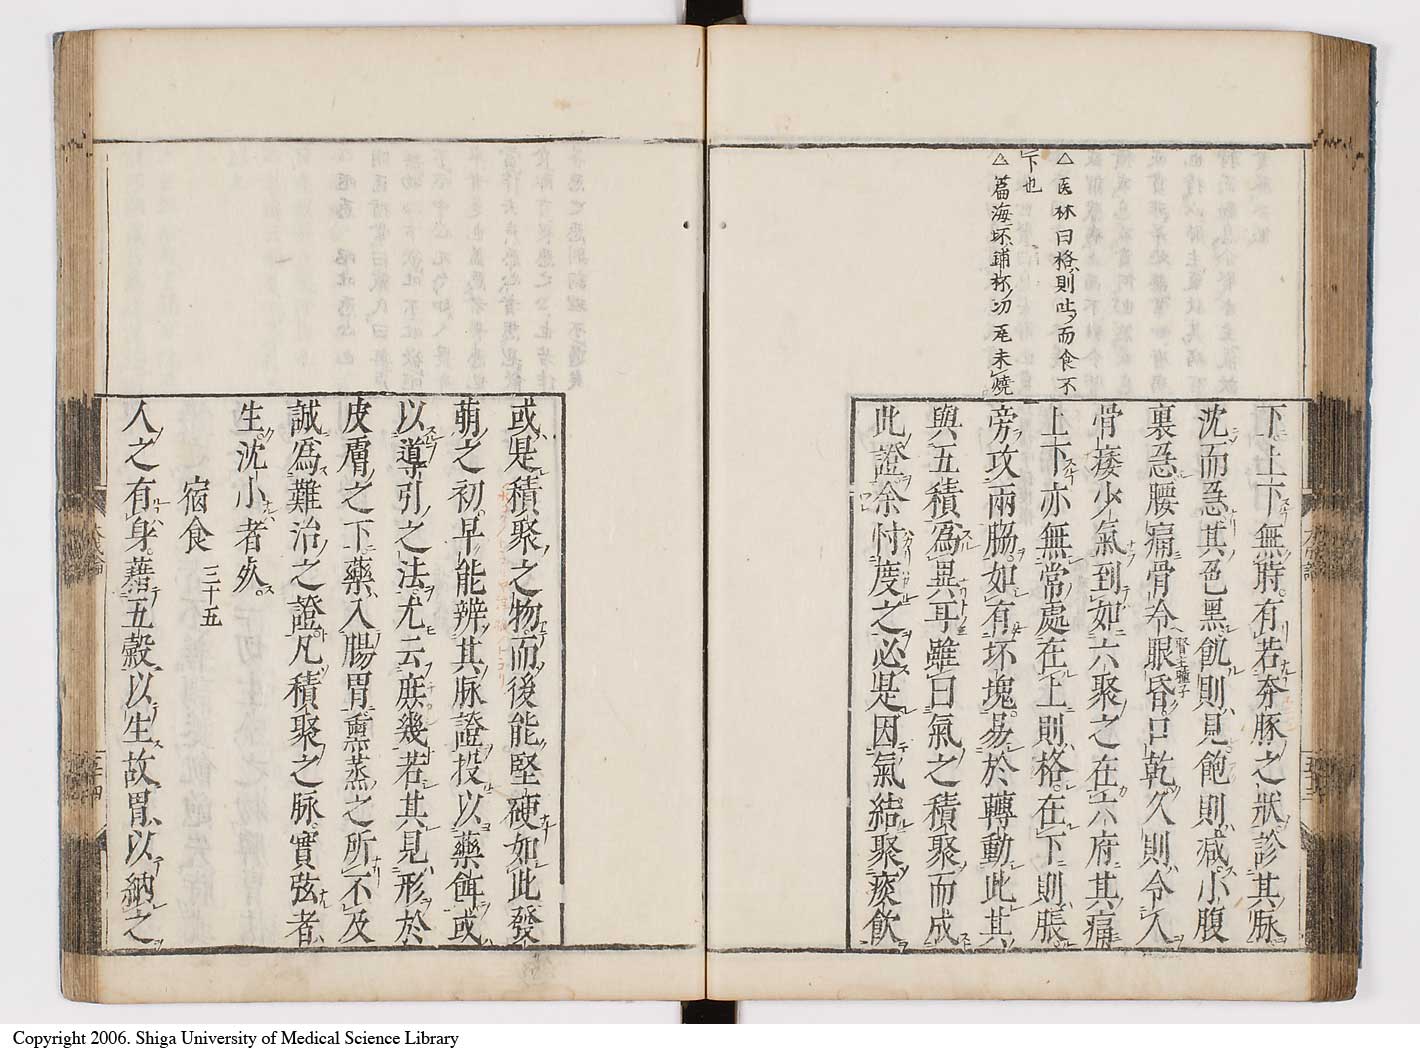 下上下無時有若奔豚之狀診其脉
沈而急其色黑飢則見飽則减小腹
裏急腰痛骨冷眼昏口乾久則令人
骨痿少氣到如六聚之在六府其痛
上下亦無常處在上則格在下則脹
旁攻兩脇如有坏塊易於轉動此其
與五積爲異耳雖曰氣之積聚而成
此證余忖度之必是因氣結聚痰飲
△医林曰格則吐而食不
下也
△篇海坏鋪杯切 瓦未燒
或是積聚之物而後能堅硬如此發
萌之初早能辨其脉證投以藥餌或
以導引之法尤云庶幾若其見形於
皮膚之下藥入腸胃熏蒸之所不及
誠爲難治之證凡積聚之脉實弦者
生沈小者死
宿食 三十五
人之有身藉五穀以生故胃以納之
Copyright 2006. Shiga University of Medical Science Library